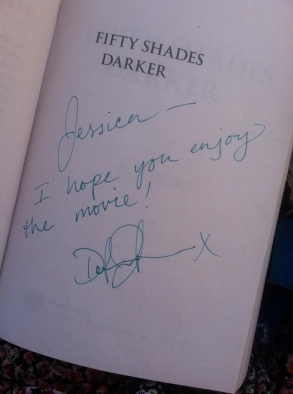 FIFTY SHADES
DARKER
Jessica —
I hope you enjoy
the movie!
X